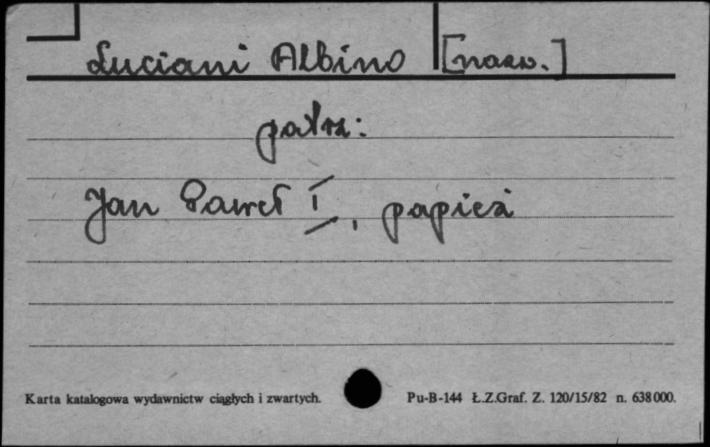 Luciani Albino [nazw.]
patrz:
Jan Paweł I, papież
Karta katalogowa wydawnictw ciągłych i zwartych. Pu-B-144 Ł.Z.Graf. Z. 120/15/82 n. 638 000.